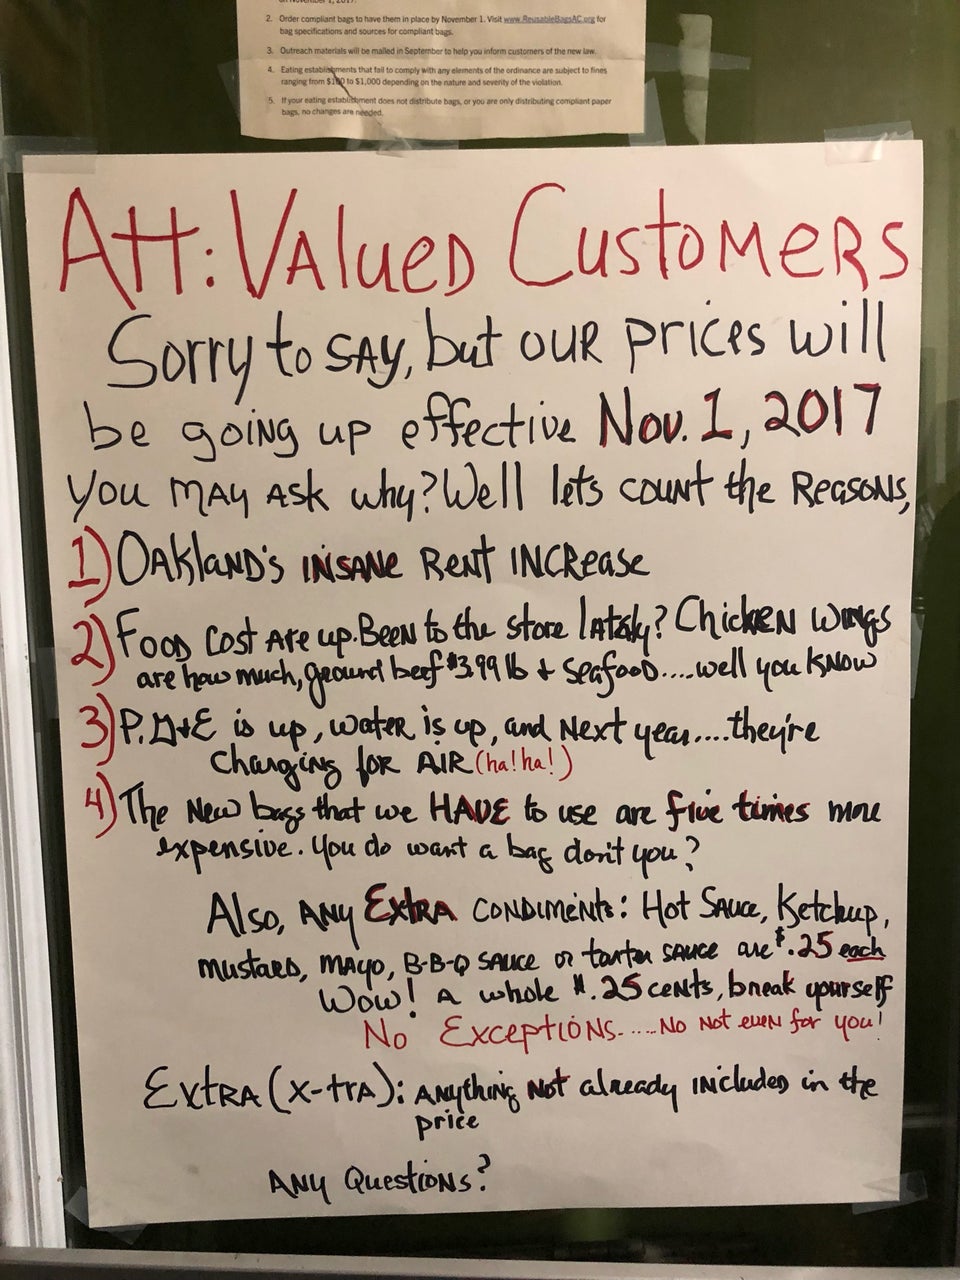 2. Order compliant bags to have them in place by November 1. Visit www.ReusableBagsAC.org for
bag specifications and sources for compliant bags.
3. Outreach materials will be mailed in September to help you inform customers of the new law.
4. Eating establishments that fail to comply with any elements of the ordinance are subject to fines
ranging from $100 to $1,000 depending on the nature and severity of the violation.
5. If your eating establishment does not distribute bags, or you are only distributing compliant paper
bags, no changes are needed.
Att: Valued Customers
Sorry to say, but our prices will
be going up effective Nov. 1, 2017
You may ask why? Well lets count the Reasons,
1) Oakland's INSANE Rent INCRease
2) Food Cost are up. Been to the store lately? Chicken wings
are how much, ground beef $3.99 lb + seafood.....well you know
3) P.G+E is up, water is up, and Next year....they're
Charging for AIR (ha! ha!)
4) The New bags that we HAVE to use are five times more
expensive. You do want a bag don't you?
Also, ANY Extra CONDIMENTS: Hot Sauce, Ketchup,
Mustard, Mayo, B-B-Q Sauce or tartar sauce are $.25 each
Wow! A whole $.25 cents, break yourself
No Exceptions.....No Not even for you!
Extra (X-tra): Anything Not already included in the
price
ANY Questions?